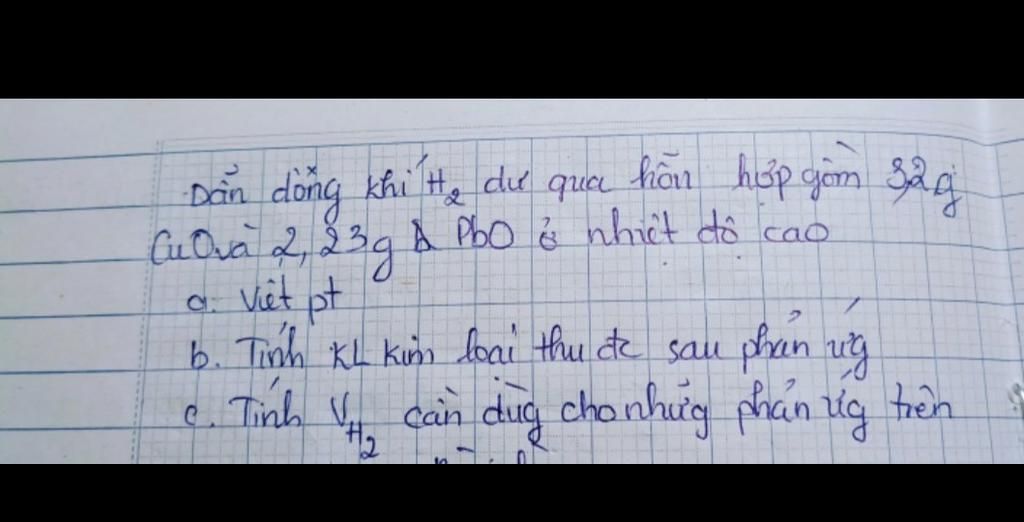 Dẫn dòng khí H₂ dư qua hỗn hợp gồm 3,2g
CuO và 2,23g PbO ở nhiệt độ cao
a. Viết pt
b. Tính KL kim loại thu đc sau phản ứg
c. Tính V H₂ cần dùg cho nhữg phản ứg trên